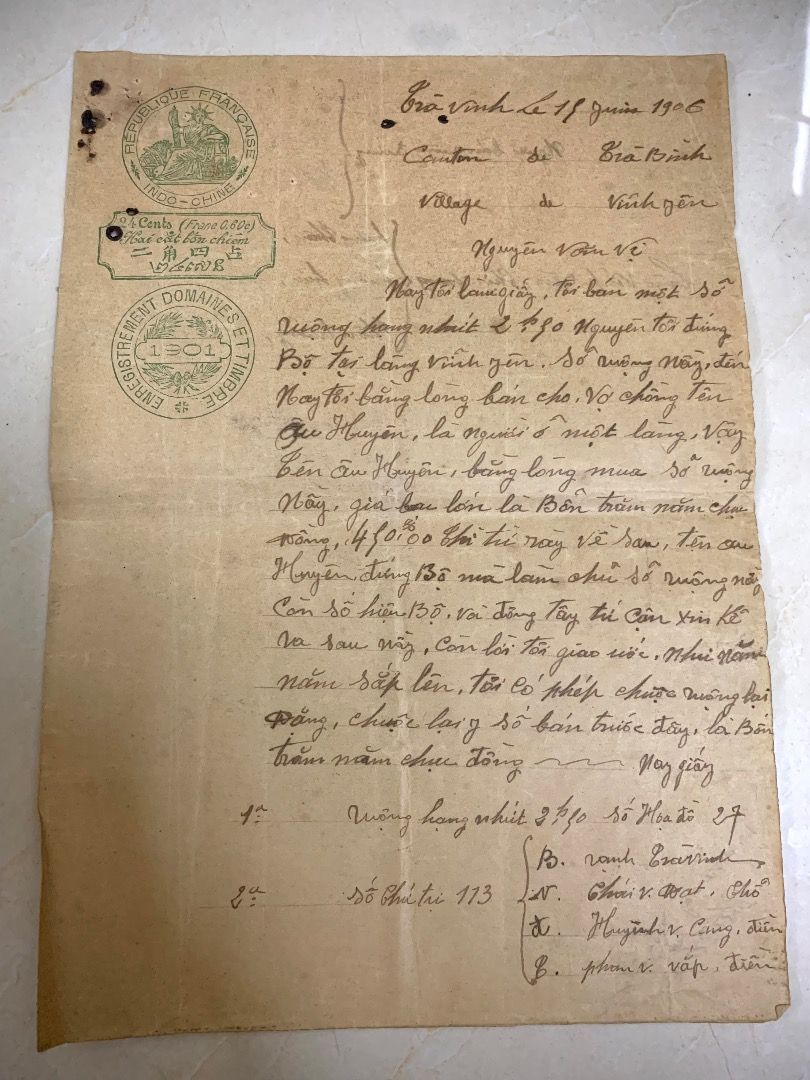 RÉPUBLIQUE FRANÇAISE
INDO-CHINE
24 Cents (Franc 0,60c)
Hai cắt bốn chiêm
二角四占
ENREGISTREMENT DOMAINES ET TIMBRE
1901
Trà Vinh le 15 Juin 1906
Canton de Trà Bình
Village de Vĩnh Yên
Nguyễn Văn Vị
Nay tôi làm giấy, tôi bán một sở
ruộng hạng nhứt 2h50 Nguyên tôi đứng
Bộ tại làng Vĩnh Yên. Sở ruộng nầy, đến
Nay tôi bằng lòng bán cho, vợ chồng tên
Âu Huyên, là người ở một làng, vậy
tên Âu Huyên, bằng lòng mua sở ruộng
nầy, giá bạc lớn là Bốn trăm năm chục
đồng, 450$00 thì từ rày về sau, tên âu
Huyên đứng Bộ mà làm chủ sở ruộng nầy
Còn số hiệu Bộ, và đông tây tứ cận xin kể
ra sau nầy, còn lời tôi giao ước, như năm
năm sắp lên, tôi có phép chuộc ruộng lại
Đặng, chuộc lại y số bán trước đây, là Bốn
trăm năm chục đồng Nay giấy
1º ruộng hạng nhứt 2h50 số Họa đồ 27
2º số 113
B. rạnh Trà Vinh
N. Thái v. Đạt, thổ
Đ. Huỳnh v. Cung, điền
T. phan v. vấp, điền